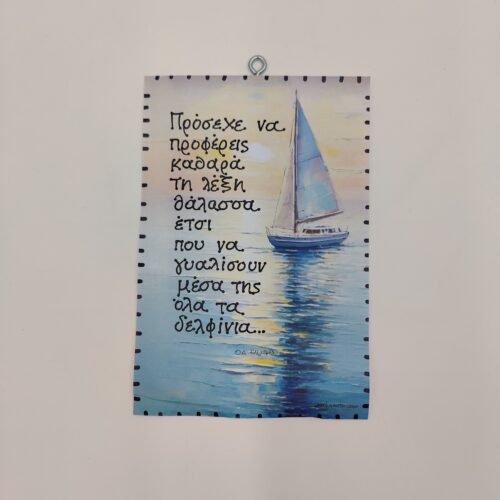 Πρόσεχε να
προφέρεις
καθαρά
τη λέξη
θάλασσα
έτσι
που να
γυαλίσουν
μέσα της
όλα τα
δελφίνια...